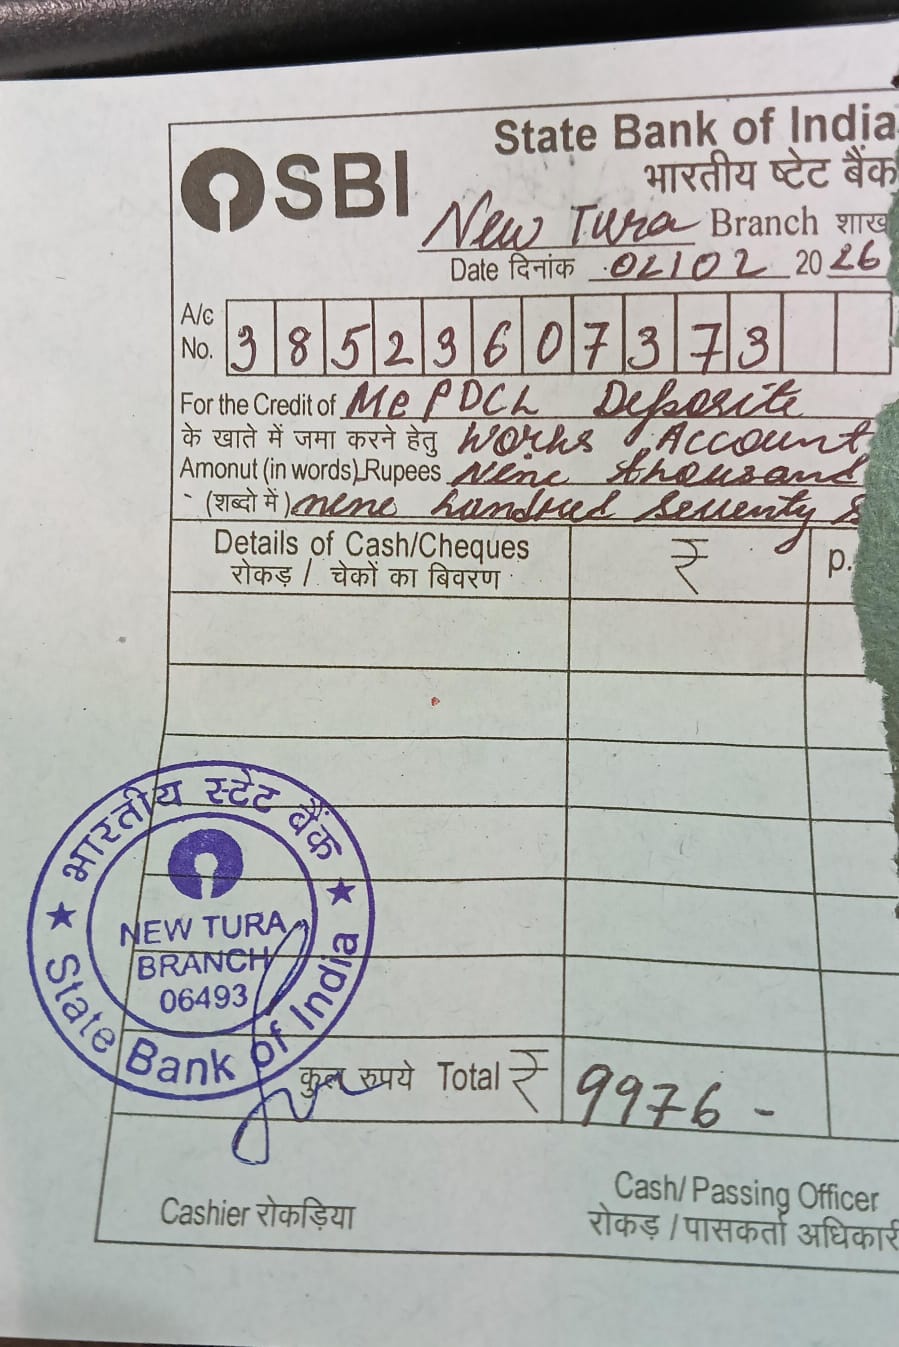 SBI
State Bank of India
भारतीय ष्टेट बैंक
New Tura Branch शाख
Date दिनांक 02/02 2026
A/c No. 38523607373
For the Credit of MePDCL Deposite
के खाते में जमा करने हेतु Works Account
Amonut (in words) Rupees Nine thousand
(शब्दो में) nine hundred seventy
Details of Cash/Cheques ₹ p.
रोकड़ / चेकों का बिवरण
भारतीय स्टेट बैंक
NEW TURA
BRANCH
06493
State Bank of India
कुल रुपये Total ₹ 9976 -
Cashier रोकड़िया
Cash/ Passing Officer
रोकड़ / पासकर्ता अधिकारी